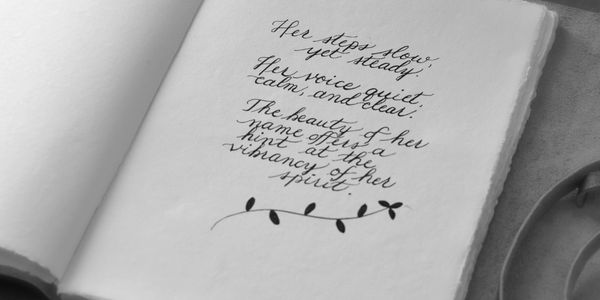 Her steps slow,
yet steady.
Her voice quiet,
calm, and clear.
The beauty of her
name offers a
hint at the
vibrancy of her
spirit.